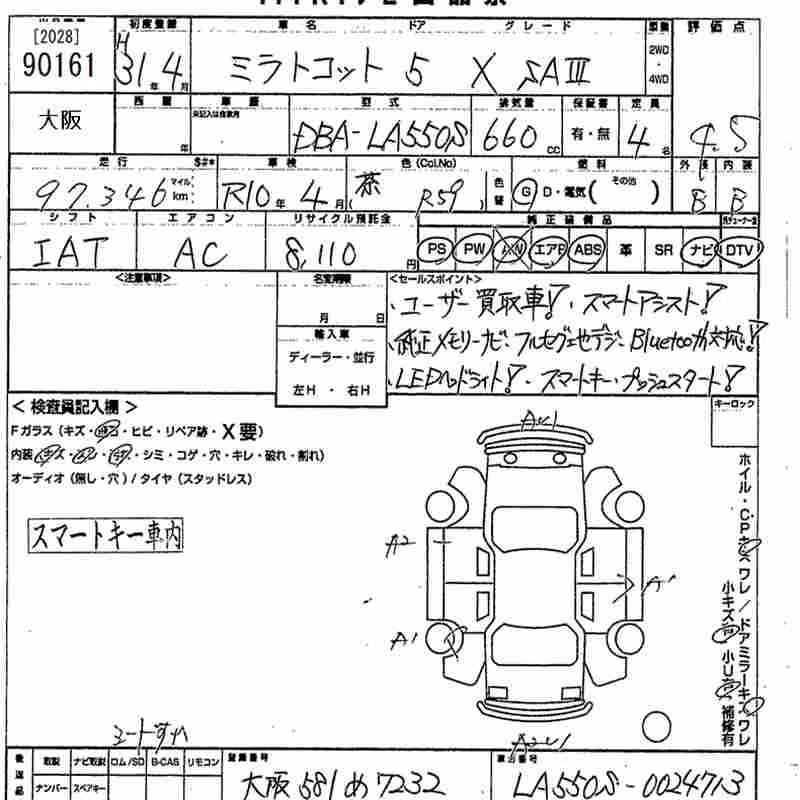 [2028]
90161
初度登録 車名 ドア グレード 車歴 評価点
H31年4月 ミラトコット 5 X SAIII 2WD・4WD 4.5
大阪
車歴 型式 排気量 保証書 定員 外装 内装
DBA-LA550S 660cc 有・無 4名 B B
走行 車検 色(Col.No) 色替 燃料
97,346 マイル km R10年4月 茶(R59) G D・電気(その他)
シフト エアコン リサイクル預託金 純正装備品
IAT AC 8,110円 PS PW AW エアB ABS 革 SR ナビ DTV
<注意事項> 名変期限 <セールスポイント>
月 日
輸入車
ディーラー・並行
左H・右H
、ユーザー買取車!・スマートアシスト!
、純正メモリーナビ・フルセグ地デジ・Bluetooth対応!
、LEDヘッドライト!・スマートキー・プッシュスタート!
キーロック
<検査員記入欄>
Fガラス(キズ・飛石・ヒビ・リペア跡・X要)
内装(キズ・汚れ・・シミ・コゲ・穴・キレ・破れ・割れ)
オーディオ(無し・穴)/タイヤ(スタッドレス)
スマートキー車内
A2
A1
A1
ホイル・CPキズ ワレ/ドアミラーキズ ワレ
小キズ有 小U有 補修有
後送品 取説 ナビ取説 ロム/SD B-CAS リモコン 登録番号 車台番号
ナンバー スペアキー 大阪581め7232 LA550S-0024713